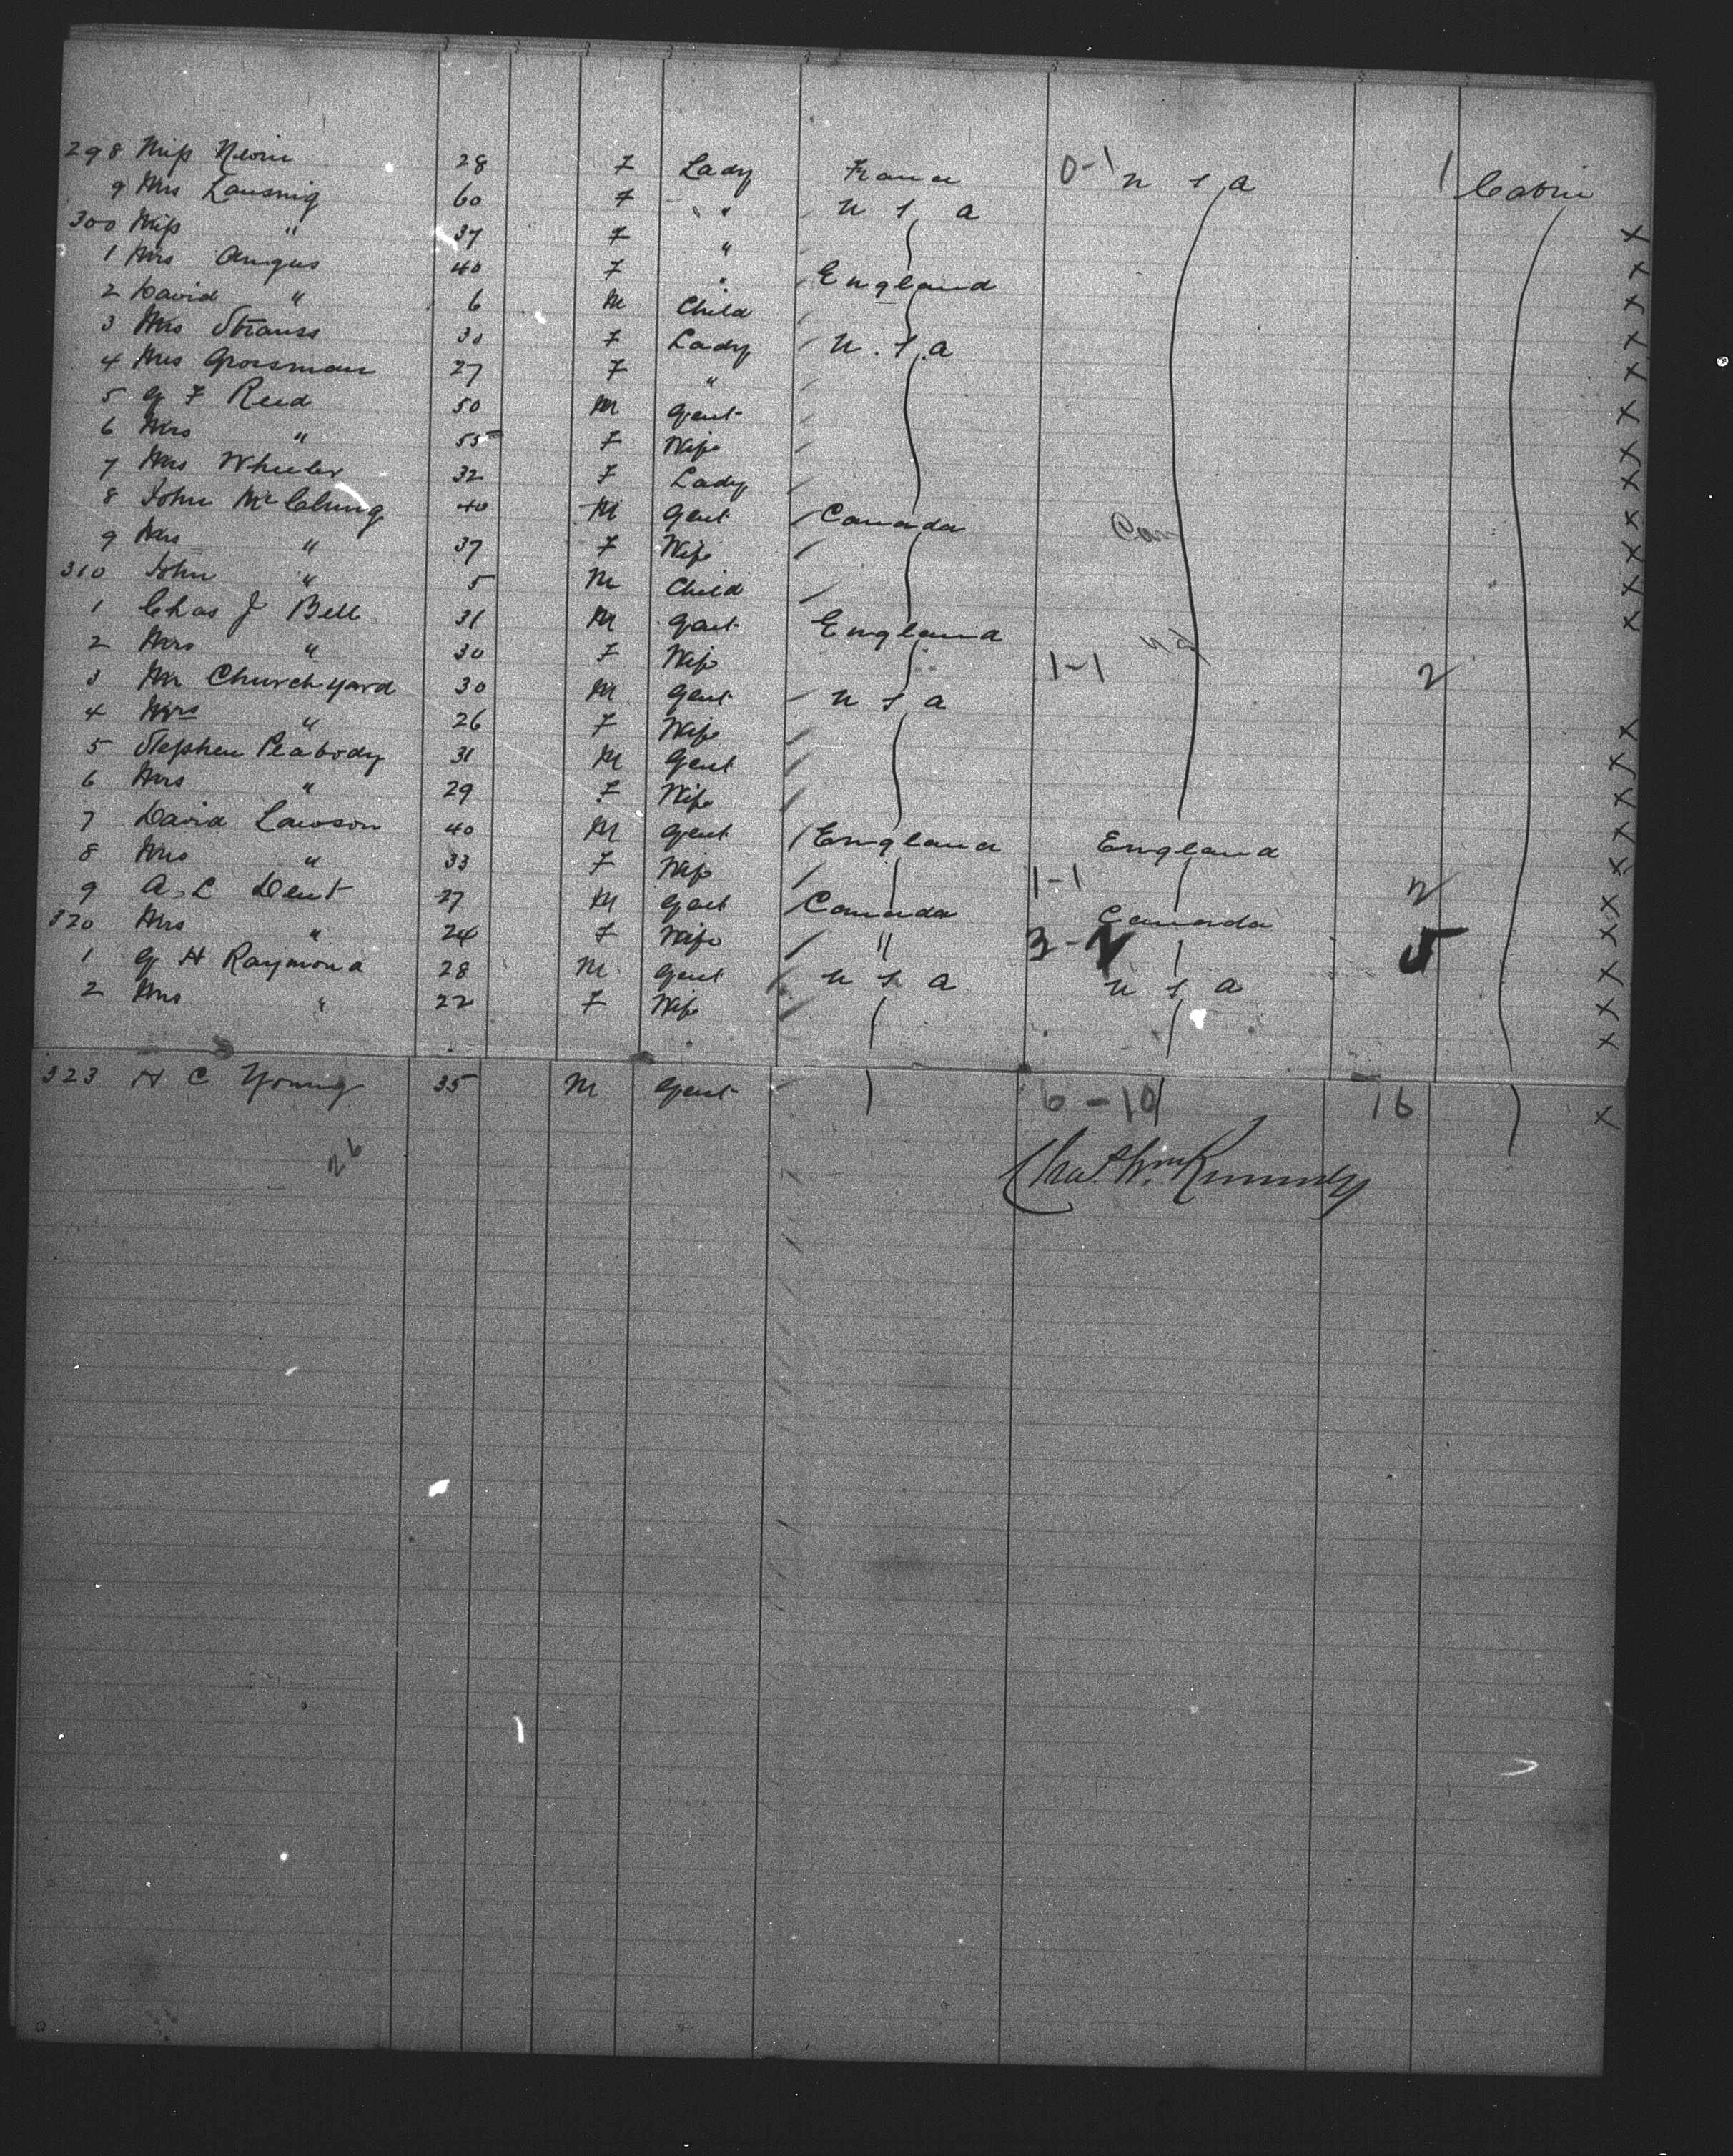 298 Miss Nevin 28 F Lady France 0-1 U S A 1 Cabin
9 Mrs Lansing 60 F " U S A
300 Miss " 37 F " X
1 Mrs Angus 40 F " England X
2 David " 6 M Child X
3 Mrs Strauss 30 F Lady U.S.A X
4 Mrs Grossman 27 F " X
5 G F Reed 50 M Gent X
6 Mrs " 55 F Wife X
7 Mrs Wheeler 32 F Lady X
8 John McClung 40 M Gent Canada Can X
9 Mrs " 37 F Wife X
310 John " 5 M Child X
1 Chas J Bell 31 M Gent England X
2 Mrs " 30 F Wife 1-1 2
3 Mr Churchyard 30 M Gent U S A
4 Mrs " 26 F Wife X
5 Stephen Peabody 31 M Gent X
6 Mrs " 29 F Wife X
7 David Lawson 40 M Gent England England X
8 Mrs " 33 F Wife 1-1 2 X
9 A. L Dent 27 M Gent Canada Canada X
320 Mrs " 24 F Wife " 3-2 5 X
1 G H Raymond 28 M Gent U S A U S A X
2 Mrs " 22 F Wife X X
323 H C Young 35 M Gent 6-10 16 X
26